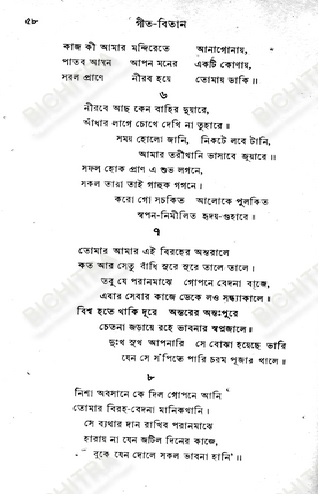 ৫৮ গীত-বিতান
কাজ কী আমার মন্দিরেতে আনাগোনায়,
পাতব আসন আপন মনের একটি কোণায়,
সরল প্রাণে নীরব হয়ে তোমায় ডাকি॥
৬
নীরবে আছ কেন বাহির দুয়ারে,
আঁধার লাগে চোখে দেখি না তুহারে॥
সময় হোলো জানি, নিকটে লবে টানি,
আমার তরীখানি ভাসাবে জুয়ারে॥
সফল হোক প্রাণ এ শুভ লগনে,
সকল তারা তাই গাহুক গগনে।
করো গো সচকিত আলোকে পুলকিত
স্বপন-নিমীলিত হৃদয়-গুহারে॥
৭
তোমার আমার এই বিরহের অন্তরালে
কত আর সেতু বাঁধি সুরে সুরে তালে তালে।
তবু যে পরানমাঝে গোপনে বেদনা বাজে,
এবার সেবার কাজে ডেকে লও সন্ধ্যাকালে॥
বিশ্ব হতে থাকি দূরে অন্তরের অন্তঃপুরে
চেতনা জড়ায়ে রহে ভাবনার স্বপ্নজালে॥
দুঃখ সুখ আপনারি সে বোঝা হয়েছে ভারি
যেন সে সঁপিতে পারি চরম পূজার থালে॥
৮
নিশা অবসানে কে দিল গোপনে আনি
তোমার বিরহ-বেদনা মানিকখানি।
সে ব্যথার দান রাখিব পরানমাঝে
হারায় না যেন জটিল দিনের কাজে,
বুকে যেন দোলে সকল ভাবনা হানি॥